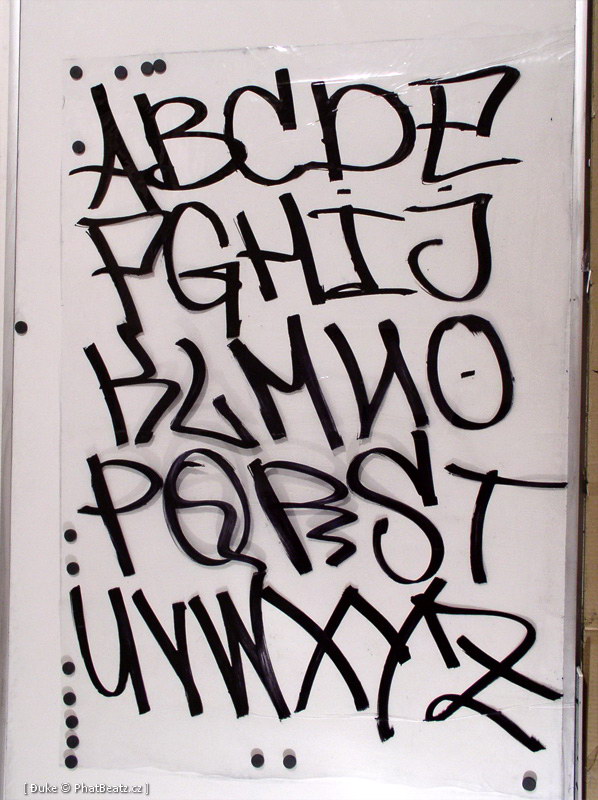 ABCDE
FGHIJ
KLMNO
PQRST
UVWXYZ
[ Duke © PhatBeatz.cz ]